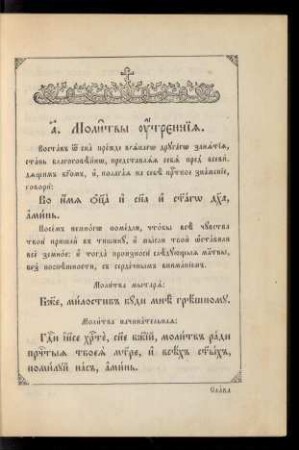 а҃. Моли̑твы ᲂу҆́треннїѧ.
Воста́въ ѿ сна̀ пре́жде всѧ́кагѡ друга́гѡ занѧ́тїѧ,
ста́нь благоговѣ́йнѡ, представлѧ́ѧ себѧ̀ пред̾ всеви́-
дѧщимъ бг҃омъ, и҆, полага́ѧ на себѣ̀ крⷭ҇тное зна́менїе,
говорѝ:
Во и҆́мѧ ѻ҆ц҃а̀ и҆ сн҃а и҆ ст҃а́гѡ дх҃а,
а҆ми́нь.
Посе́мъ немно́гѡ поме́дли, что́бы всѣ̀ чу̑вства
твоѧ̑ пришлѝ въ тишинꙋ̀ и҆ мы̑сли твоѧ̑ ѡ҆ста́вили
всѐ земно́е: и҆ тогда̀ произносѝ слѣ́дꙋющыѧ мл҃твы,
без̾ поспѣ́шности, съ серде́чнымъ внима́нїемъ.
Моли́тва мытарѧ̀:
Бж҃е, млⷭ҇тивъ бꙋ́ди мнѣ̀ грѣ́шномꙋ.
Моли́тва начина́тельнаѧ:
Гдⷭ҇и і҆и҃се хрⷭ҇тѐ, сн҃е бж҃їй, моли́твъ ра́ди
пречⷭ҇тыѧ твоеѧ̀ мт҃ре, и҆ всѣ́хъ ст҃ы́хъ,
поми́лꙋй на́съ, а҆ми́нь.
Сла́ва